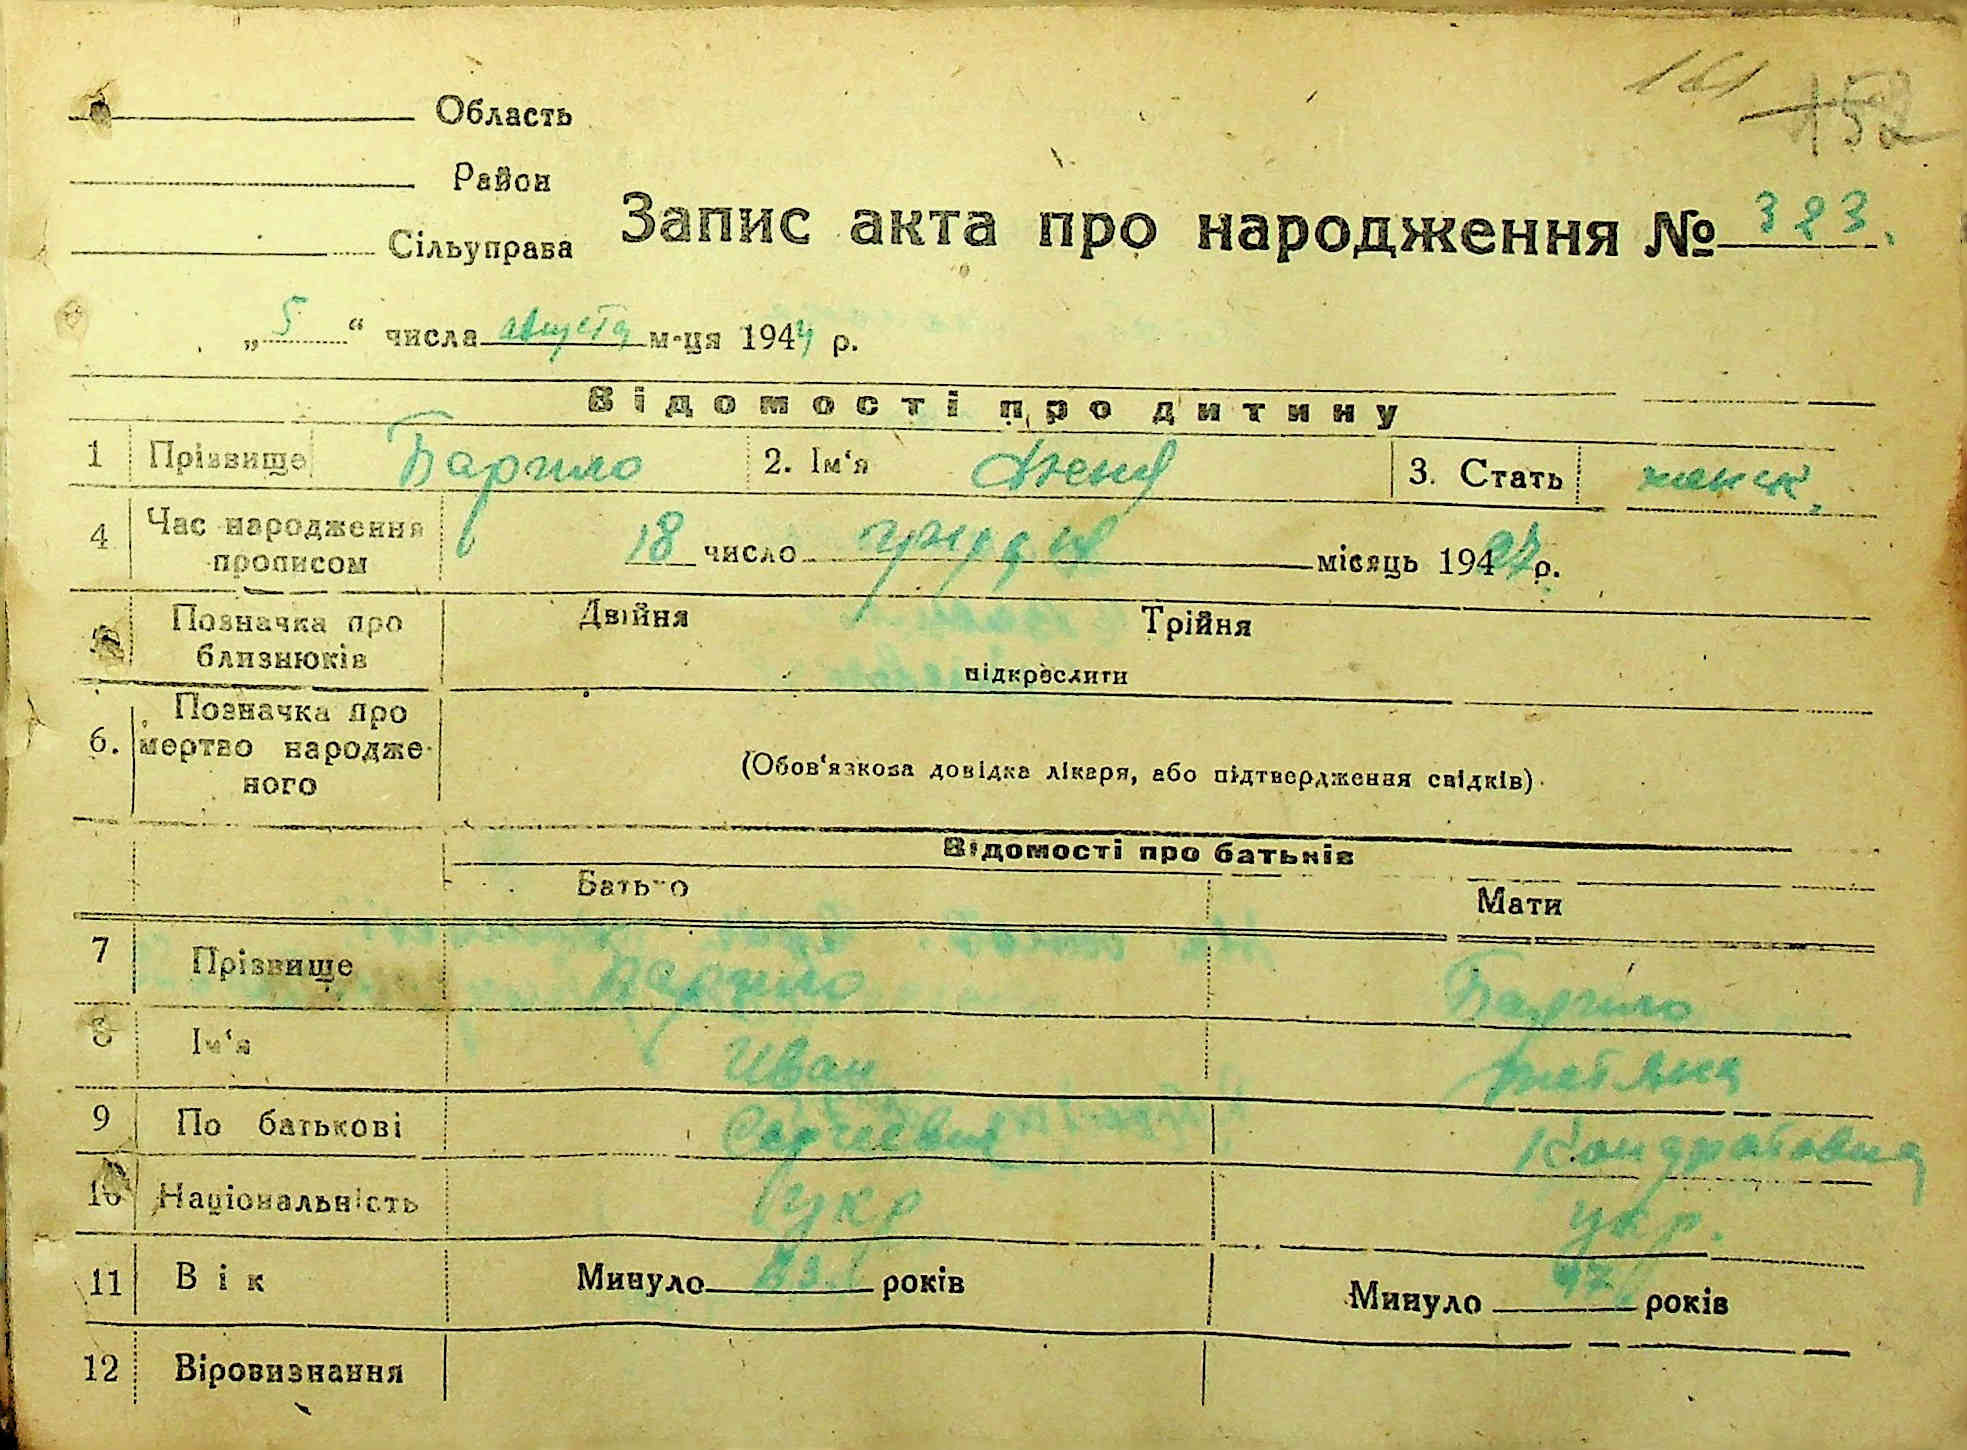 161 152
Область
Район
Сільуправа
Запис акта про народження № 323.
„5“ числа августа м-ця 1944 р.
Відомості про дитину
1 Прізвище Баргило 2. Ім‘я Женя 3. Стать женск.
4 Час народження прописом 18 число грудня місяць 194 р.
Позначка про близнюків Двійня Трійня
підкреслити
6. Позначка про мертво народженого
(Обов‘язкова довідка лікаря, або підтвердження свідків)
Відомості про батьків
Батько Мати
7 Прізвище Баргило Баргило
8 Ім‘я Иван Татьяна
9 По батькові Сергеевич Кондратовна
10 Національність укр укр.
11 Вік Минуло років Минуло років
12 Віровизнання